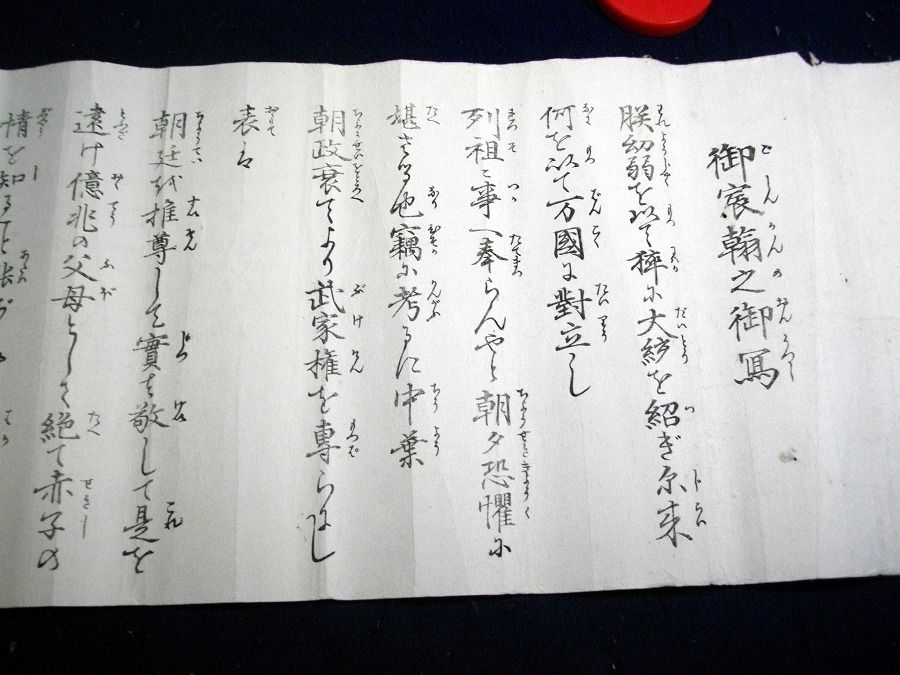 御宸翰之御冩
朕幼弱を以て猝に大統を紹ぎ尓来
何を以て万國に對立し
列祖に事へ奉らんやと朝夕恐懼に
堪ざる也竊に考るに中葉
朝政衰てより武家權を專らにし
表は
朝廷を推尊して實は敬して是を
遠け億兆の父母として絶て赤子の
情を知る